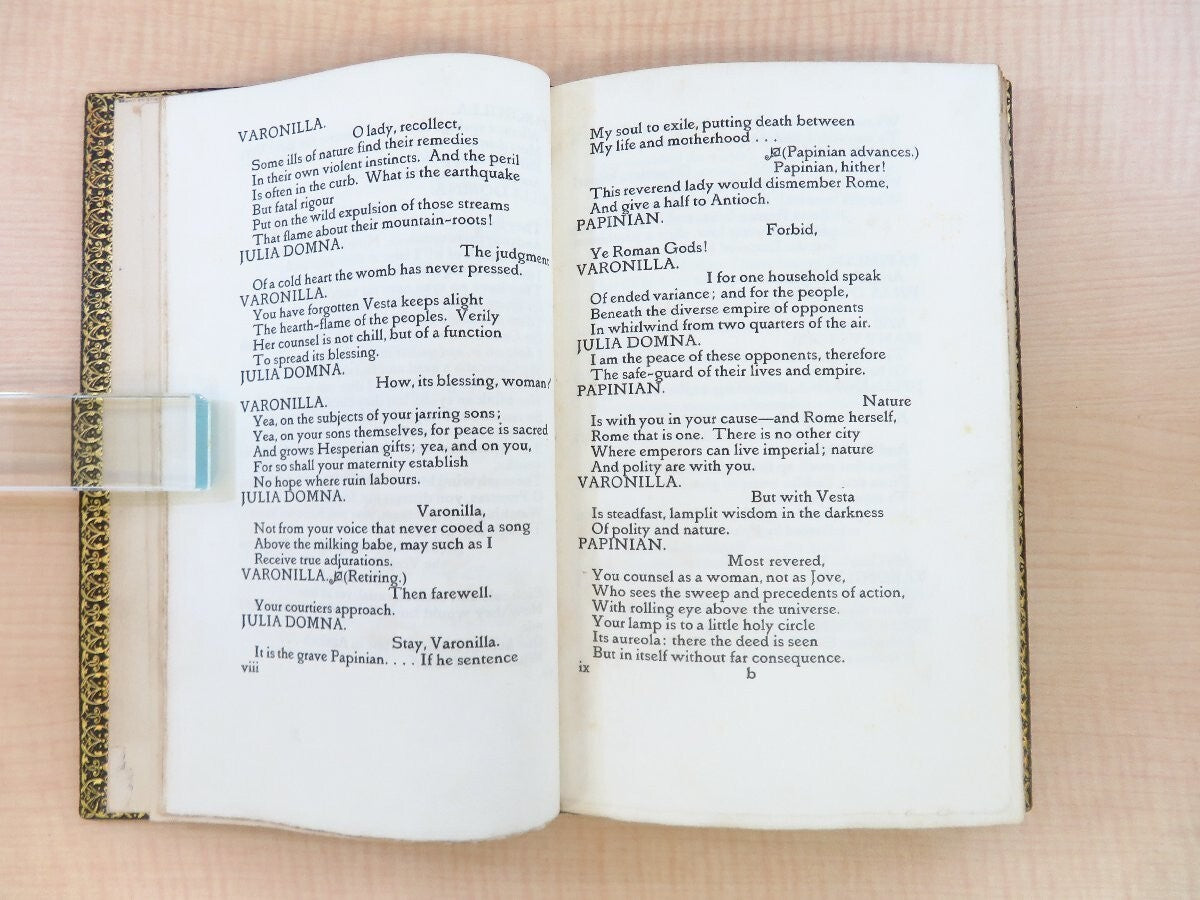 VARONILLA.
O lady, recollect,
Some ills of nature find their remedies
In their own violent instincts. And the peril
Is often in the curb. What is the earthquake
But fatal rigour
Put on the wild expulsion of those streams
That flame about their mountain-roots!
JULIA DOMNA.
The judgment
Of a cold heart the womb has never pressed.
VARONILLA.
You have forgotten Vesta keeps alight
The hearth-flame of the peoples. Verily
Her counsel is not chill, but of a function
To spread its blessing.
JULIA DOMNA.
How, its blessing, woman?
VARONILLA.
Yea, on the subjects of your jarring sons;
Yea, on your sons themselves, for peace is sacred
And grows Hesperian gifts; yea, and on you,
For so shall your maternity establish
No hope where ruin labours.
JULIA DOMNA.
Varonilla,
Not from your voice that never cooed a song
Above the milking babe, may such as I
Receive true adjurations.
VARONILLA. (Retiring.)
Then farewell.
Your courtiers approach.
JULIA DOMNA.
Stay, Varonilla.
It is the grave Papinian. . . . If he sentence
viii
My soul to exile, putting death between
My life and motherhood . . .
(Papinian advances.)
Papinian, hither!
This reverend lady would dismember Rome,
And give a half to Antioch.
PAPINIAN.
Forbid,
Ye Roman Gods!
VARONILLA.
I for one household speak
Of ended variance; and for the people,
Beneath the diverse empire of opponents
In whirlwind from two quarters of the air.
JULIA DOMNA.
I am the peace of these opponents, therefore
The safe-guard of their lives and empire.
PAPINIAN.
Nature
Is with you in your cause—and Rome herself,
Rome that is one. There is no other city
Where emperors can live imperial; nature
And polity are with you.
VARONILLA.
But with Vesta
Is steadfast, lamplit wisdom in the darkness
Of polity and nature.
PAPINIAN.
Most revered,
You counsel as a woman, not as Jove,
Who sees the sweep and precedents of action,
With rolling eye above the universe.
Your lamp is to a little holy circle
Its aureola: there the deed is seen
But in itself without far consequence.
ix
b